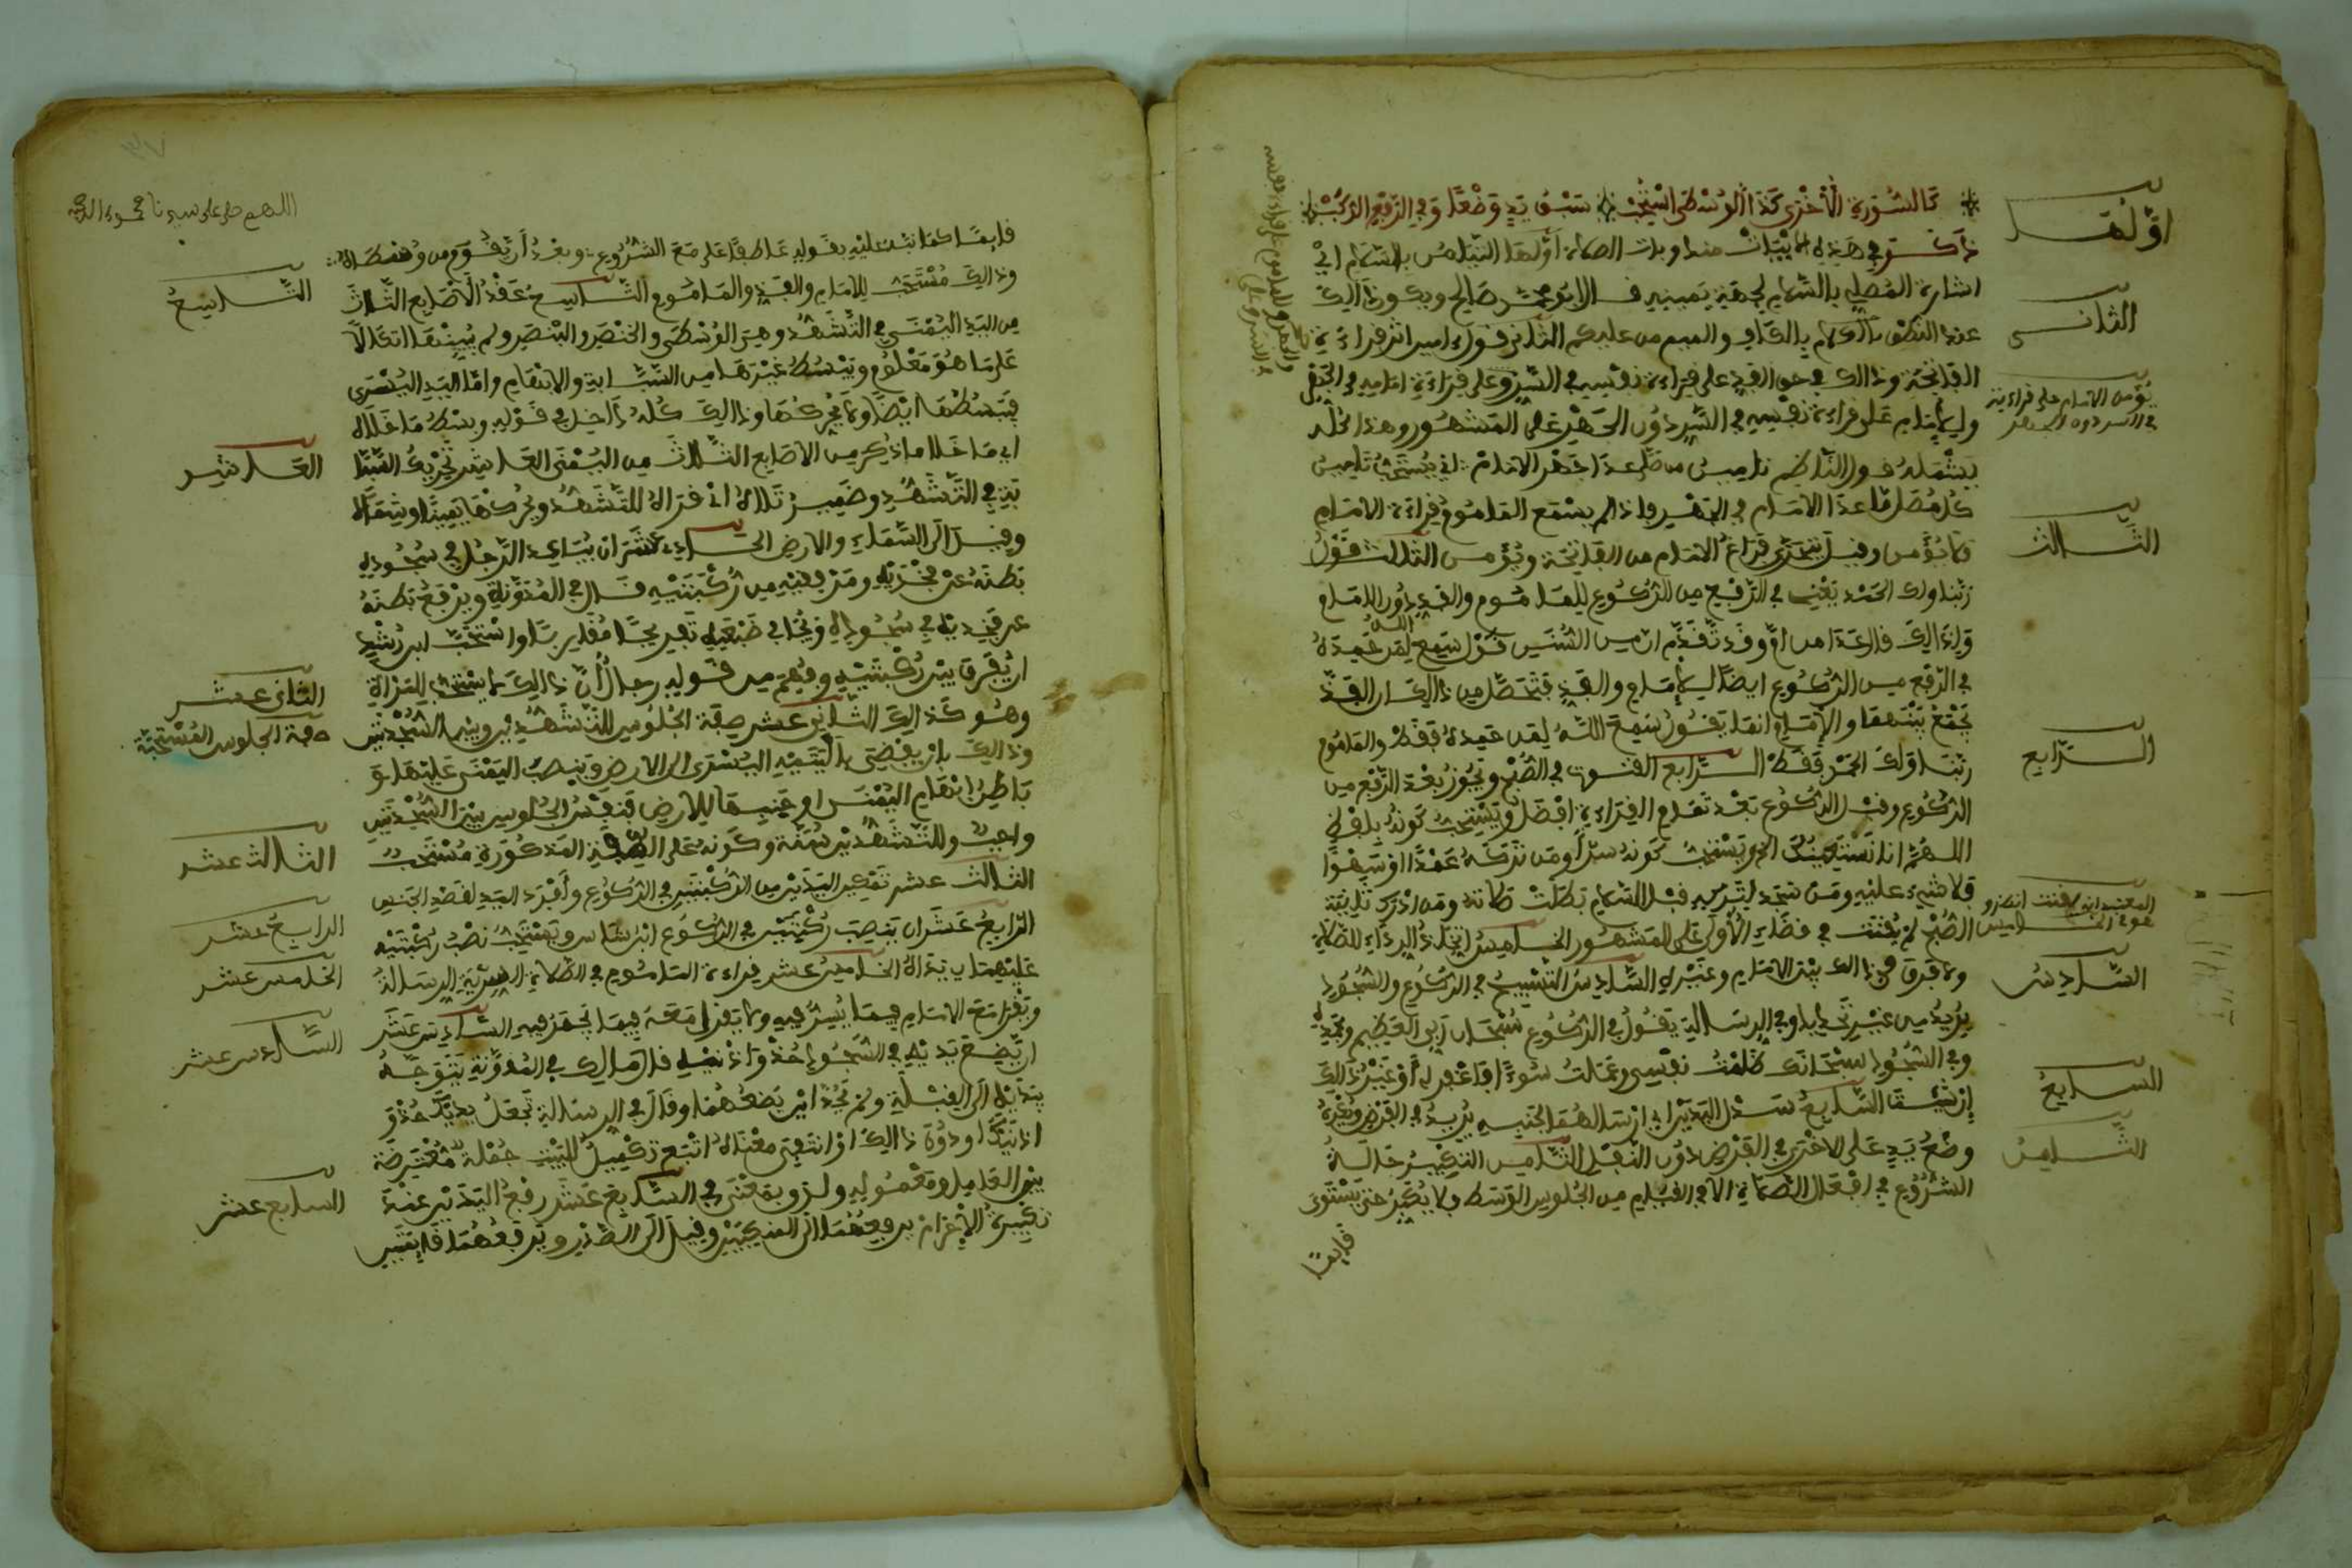 كالسورة الأخرى كذا الوسطى استحب سبق يد وضعا وفي الرفع الركب
ذكر في هذه الأبيات مندوبات الصلاة أولها التيامن بالسلام اي
اشارة المصلي بالسلام لجهة يمينه قال ابو محمد صالح ويكون ذالك
عند النطق بالكاف والميم من عليكم الثاني قول امين اثر قراءة
الفاتحة وذالك في حق الفذ على قراءة نفسه في السر وعلى قراءة امامه في الجهر
وللإمام على قراءة نفسه في السر دون الجهر على المشهور وهذا كله
يشمله قول الناظم تامين من صلى عدا جهر الامام اي يستحب تامين
كل مصل ما عدا الامام في الجهر واذا لم يسمع الماموم قراءة الامام
فلا يؤمن وقيل يتحرى فراغ الامام من الفاتحة ويؤمن الثالث قول
ربنا ولك الحمد يعني في الرفع من الركوع للماموم والفذ دون الامام
ولذالك قال عدا من ام وقد تقدم ان من السنن قول سمع الله لمن حمده
في الرفع من الركوع ايضا للإمام والفذ فتحصل من ذالك ان الفذ
يجمع بينهما والإمام انما يقول سمع الله لمن حمده فقط والماموم
ربنا ولك الحمد فقط الرابع القنوت في الصبح ويجوز بعد الرفع من
الركوع وقبل الركوع بعد تمام القراءة افضل ويستحب كونه بلفظ
اللهم انا نستعينك الخ ويستحب كونه سرا ومن تركه عمدا او سهوا
فلا شيء عليه ومن سجد لتركه قبل السلام بطلت صلاته ومن ادرك ثانية
الصبح لم يقنت في قضاء الأولى على المشهور الخامس اتخاذ الرداء للصلاة
ولا فرق في ذالك بين الامام وغيره السادس التسبيح في الركوع والسجود
يريد من غير تحديد وفي الرسالة يقول في الركوع سبحان ربي العظيم وبحمده
وفي السجود سبحانك ظلمت نفسي وعملت سوءا فاغفر لي أو غير ذالك
إن شئت السابع سدل اليدين اي ارسالهما لجنبيه يريد في الفرض ويكره
وضع يد على الاخرى في الفرض دون النفل الثامن التكبير حالة
الشروع في افعال الصلاة الا في القيام من الجلوس الوسط فلا يكبر حتى يستوي
قايما
أولها
الثاني
يؤمن الامام على قراءته
في السر دون الجهر
الثالث
الرابع
السادس
السابع
الثامن
اللهم صل على سيدنا محمد
قايما كما نبه عليه بقوله عاطفا على مع الشروع وبعد أن يقوم من وسطاه
وذالك مستحب للامام والفذ والماموم التاسع عقد الأصابع الثلاث
من اليد اليمنى في التشهد وهي الوسطى والخنصر والبنصر ولم يبينها اتكالا
على ما هو معلوم ويبسط غيرها من السبابة والابهام واما اليد اليسرى
فيبسطها ايضا ولا يحركها وذالك كله داخل في قوله وبسط ما خلاه
اي ما خلا ما ذكر من الاصابع الثلاث من اليمنى العاشر تحريك السبا
بة في التشهد وضمير تلاه اي قراه للتشهد ويحركها يمينا وشمالا
وقيل الى السماء والارض الحادي عشر ان يباعد الرجل في سجوده
بطنه عن فخذيه ومرفقيه من ركبتيه قال في المدونة ويرفع بطنه
عن فخذيه في سجوده ويجافي ضبعيه تفريجا مقاربا واستحب ابن رشد
ان يفرق بين ركبتيه وفهم من قوله رجال أن ذالك لا يستحب للمراة
وهو كذالك الثاني عشر صفة الجلوس للتشهدين وبين السجدتين
وذالك بان يفضي باليته اليسرى الى الارض وينصب اليمنى عليها و
باطن ابهام اليمنى او جنبها للارض فنفس الجلوس بين السجدتين
واجب وللتشهدين سنة وكونه على الصفة المذكورة مستحب
الثالث عشر تمكين اليدين من الركبتين في الركوع وأفرد اليد لقصد الجنس
الرابع عشر ان ينصب ركبتيه في الركوع ابن شاس ويستحب نصب ركبتيه
عليهما يداه الخامس عشر قراءة الماموم في الصلاة السرية الرسالة
ويقرا مع الامام فيما يسر فيه ولا يقرا معه فيما يجهر فيه السادس عشر
ان يضع يديه في السجود حذو اذنيه قال مالك في المدونة يتوجه
بيديه الى القبلة ولم يحد اين يضعهما وقال في الرسالة تجعل يديك حذو
اذنيك او دون ذالك
بين العامل ومعموله السابع عشر رفع اليدين عند
تكبيرة الإحرام يرفعهما الى المنكبين وقيل الى الصدر ويرفعهما قايمتين
التاسع
العاشر
الثاني عشر
صفة الجلوس المستحبة
الثالث عشر
الرابع عشر
الخامس عشر
السادس عشر
السابع عشر